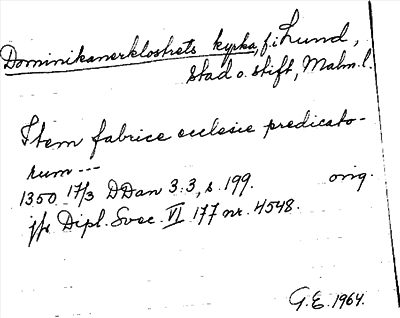 Dominikanerklostrets kyrka, f. i Lund,
stad o. stift, Malm. l.
Item fabrice ecclesie predicato-
rum ---
1350 17/3 DDan 3:3, s. 199. orig.
jfr Dipl. Svec. VI 177 nr. 4548.
G.E. 1964.